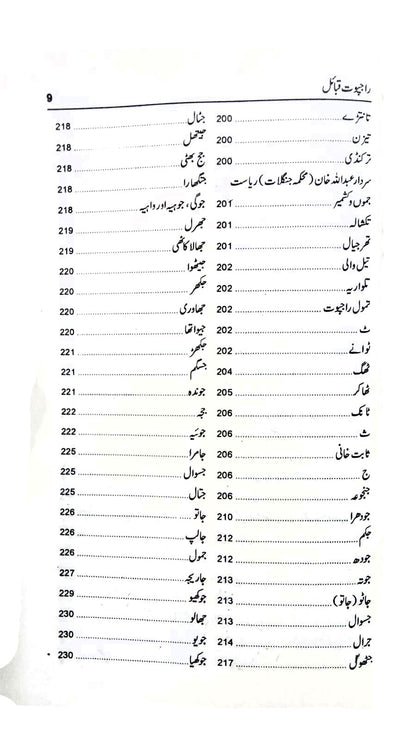 راجپوت قبائل
9
تانترے 200
تیزن 200
ترکنڈی 200
سردار عبداللہ خان (محکمہ جنگلات) ریاست
جموں و کشمیر 201
تکشالہ 201
تھرجیال 201
تیل والی 202
تکواریہ 202
تمول راجپوت 202
ٹ 202
ٹوانے 202
ٹھگ 204
ٹھاکر 205
ٹانک 206
ث 206
ثابت خانی 206
ج 206
جنجوعہ 206
جودھرا 210
جکم 212
جودھ 212
جوتہ 213
جاٹو (جاتو) 213
جسوال 213
جرال 214
217
جٹال 218
جیٹھل 218
جج بھٹی 218
جنگھارا 218
جوگی، جوہیہ اور واہیہ 218
جھرل 219
جھالا کاٹھی 219
جیٹھوا 220
جکھر 220
جھاوری 220
جیواتھا 220
جکھڑ 221
جسگم 221
جوندہ 221
ججہ 222
جوئیہ 222
جامرا 225
جسوال 225
جنال 225
جاتو 226
جالپ 226
جمول 226
جاریجہ 227
جوکھیو 229
جھالو 230
جویو 230
جوکھیا 230